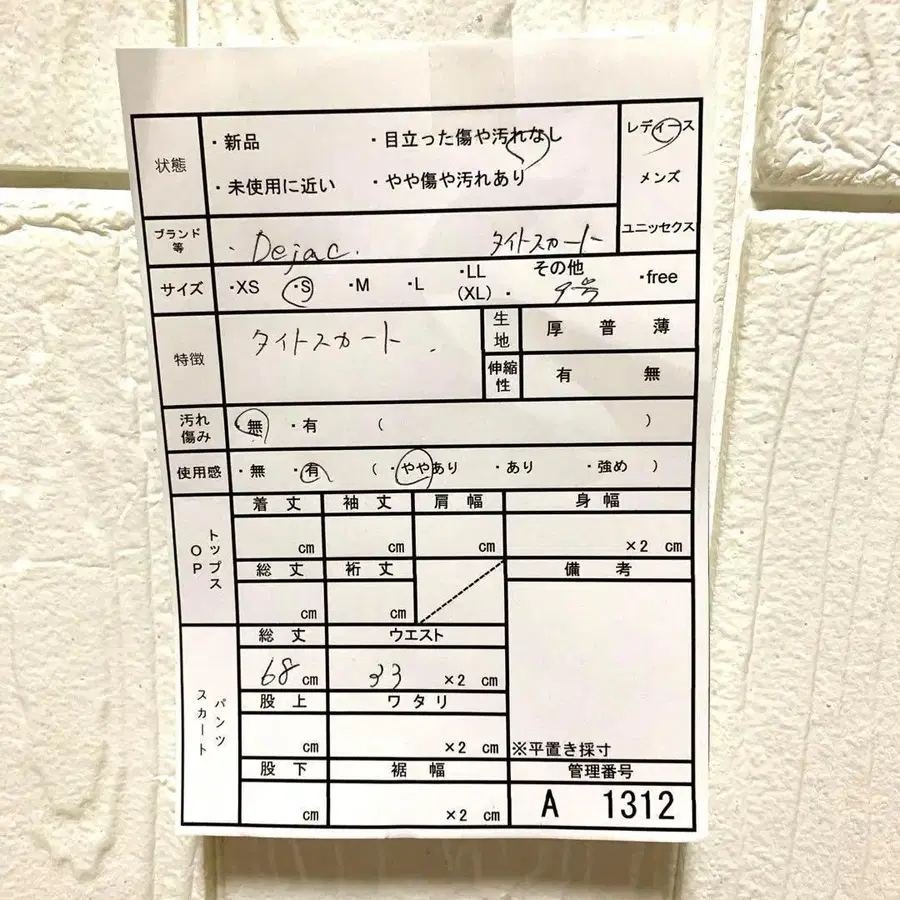 状態 ・新品 ・目立った傷や汚れなし レディース
・未使用に近い ・やや傷や汚れあり メンズ
ユニッセクス
ブランド等 ・Dejac. タイトスカート
サイズ ・XS ・S ・M ・L ・LL (XL) ・ その他 9号 ・free
特徴 タイトスカート. 生地 厚 普 薄
伸縮性 有 無
汚れ傷み ・無 ・有 ( )
使用感 ・無 ・有 ( ・ややあり ・あり ・強め )
トップス OP 着丈 袖丈 肩幅 身幅
cm cm cm ×2 cm
総丈 裄丈 備考
cm cm
パンツ スカート 総丈 ウエスト
68 cm 33 ×2 cm
股上 ワタリ
cm ×2 cm ※平置き採寸
股下 裾幅 管理番号
cm ×2 cm A 1312